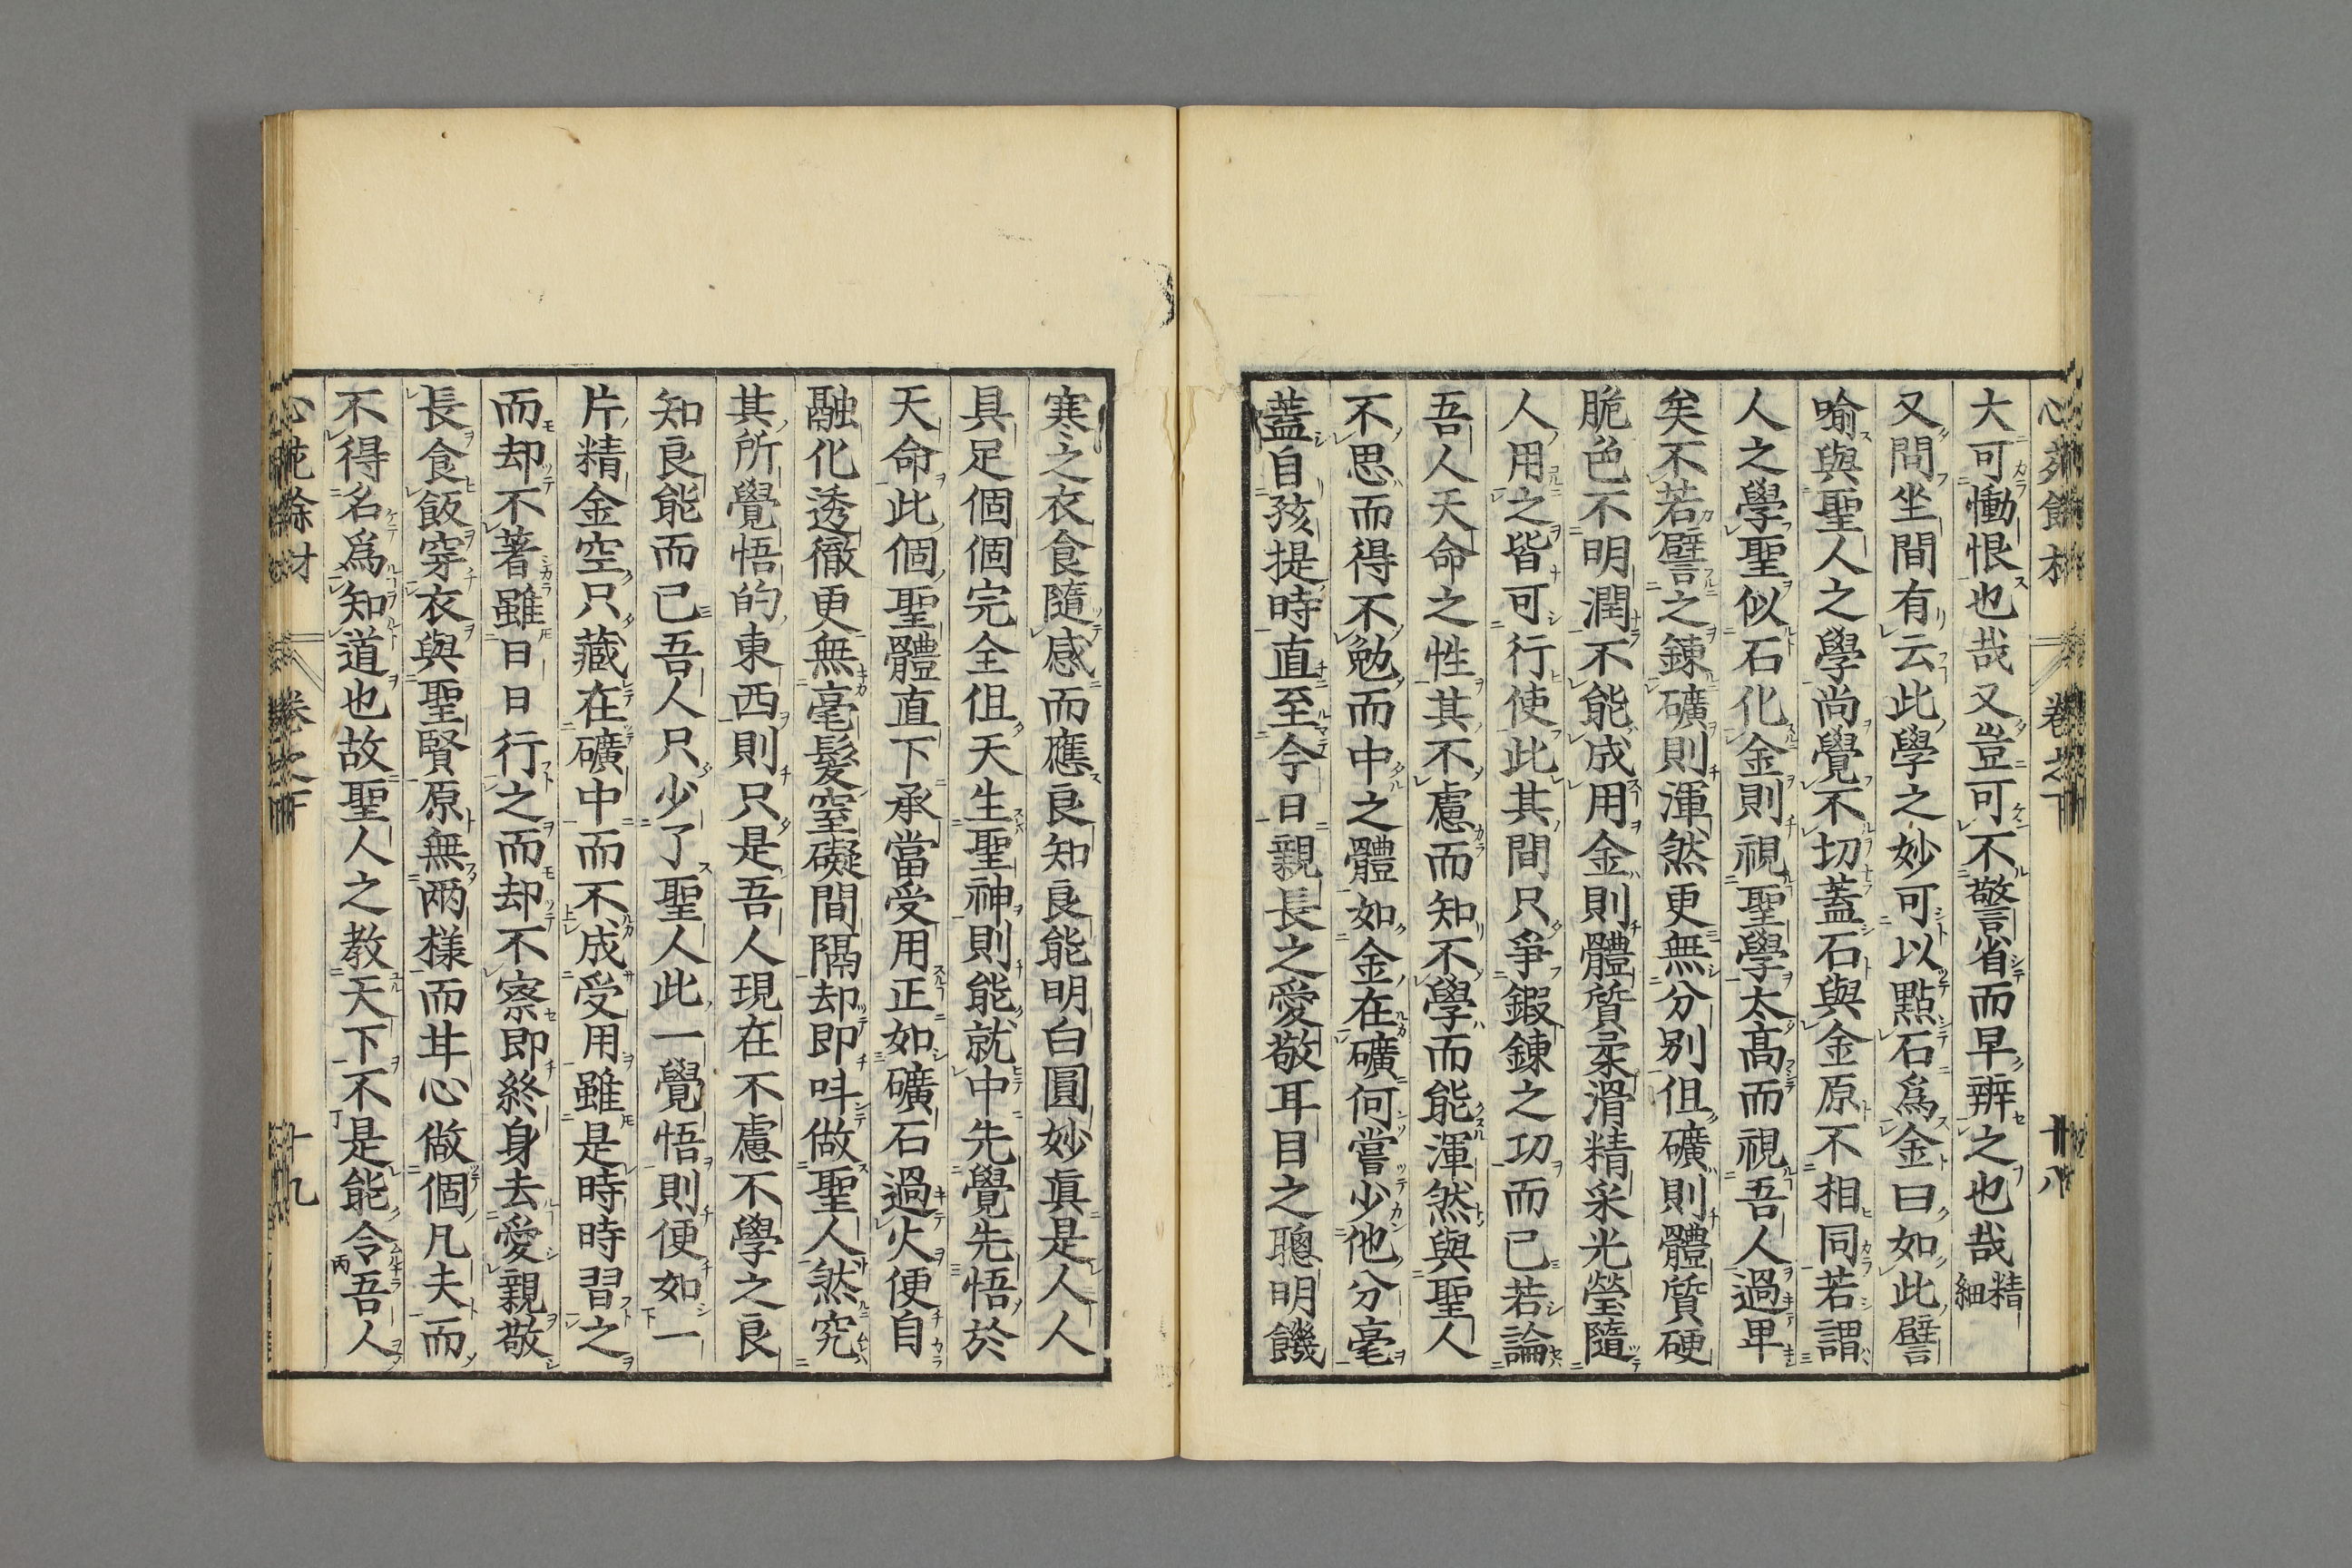 大可慟恨也哉又豈可不警省而早辨之也哉精細
又問坐間有云此學之妙可以點石爲金曰如此譬
喻與聖人之學尚覺不切蓋石與金原不相同若謂
人之學聖似石化金則視聖學太高而視吾人過卑
矣不若譬之錬礦則渾然更無分別但礦則體質硬
脆色不明潤不能成用金則體質柔滑精采光瑩隨
人用之皆可行使此其間只爭鍜錬之功而已若論
吾人天命之性其不慮而知不學而能渾然與聖人
不思而得不勉而中之體如金在礦何嘗少他分毫
蓋自孩提時直至今日親長之愛敬耳目之聰明饑
寒之衣食隨感而應良知良能明白圓妙眞是人人
具足個個完全但天生聖神則能就中先覺先悟於
天命此個聖體直下承當受用正如礦石過火便自
融化透徹更無毫髮窒礙間隔却即呌做聖人然究
其所覺悟的東西則只是吾人現在不慮不學之良
知良能而已吾人只少了聖人此一覺悟則便如一
片精金空只藏在礦中而不成受用雖是時時習之
而却不著雖日日行之而却不察即終身去愛親敬
長食飯穿衣與聖賢原無兩樣而甘心做個凡夫而
不得名爲知道也故聖人之教天下不是能令吾人
卷之下
十九